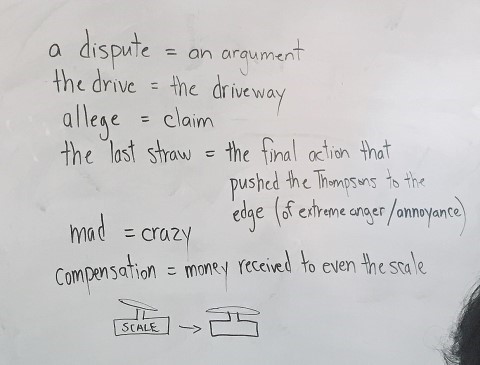 a dispute = an argument
the drive = the driveway
allege = claim
the last straw = the final action that
pushed the Thompsons to the
edge (of extreme anger/annoyance)
mad = crazy
compensation = money received to even the scale
SCALE →